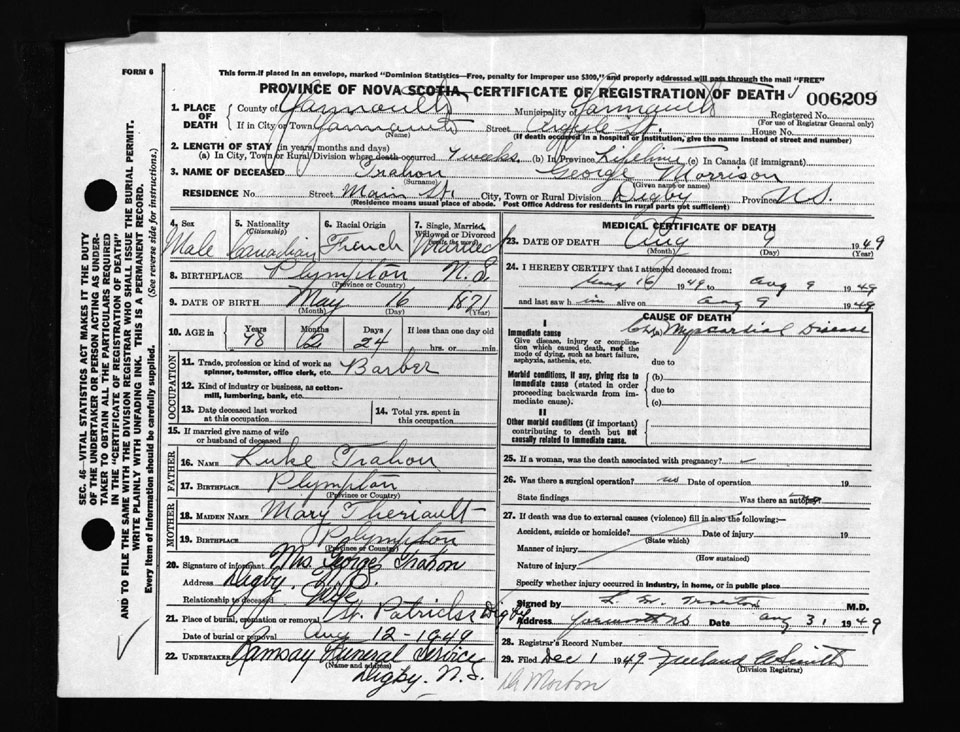 FORM 6
This form if placed in an envelope, marked "Dominion Statistics—Free, penalty for improper use $300," and properly addressed will pass through the mail "FREE"
PROVINCE OF NOVA SCOTIA, CERTIFICATE OF REGISTRATION OF DEATH
006209
1. PLACE OF DEATH
County of Yarmouth Municipality of Yarmouth Registered No.
(For use of Registrar General only)
If in City or Town Yarmouth Street Argyle St. House No.
(Name) (If death occurred in a hospital or institution, give the name instead of street and number)
2. LENGTH OF STAY (in years, months and days)
(a) In City, Town or Rural Division where death occurred 7 weeks (b) In Province Lifetime (c) In Canada (if immigrant)
3. NAME OF DECEASED Trahon George Morrison
(Surname) (Given name or names)
RESIDENCE No. Street Main St City, Town or Rural Division Digby Province N.S.
(Residence means usual place of abode. Post Office Address for residents in rural parts not sufficient)
4. Sex Male
5. Nationality (Citizenship) Canadian
6. Racial Origin French
7. Single, Married, Widowed or Divorced Married
8. BIRTHPLACE Plympton N.S.
(Province or Country)
9. DATE OF BIRTH May 16 1871
(Month) (Day) (Year)
10. AGE in Years 78 Months 2 Days 24 If less than one day old
hrs. or min.
OCCUPATION
11. Trade, profession or kind of work as spinner, teamster, office clerk, etc. Barber
12. Kind of industry or business, as cotton-mill, lumbering, bank, etc.
13. Date deceased last worked at this occupation
14. Total yrs. spent in this occupation
15. If married give name of wife or husband of deceased
FATHER
16. NAME Luke Trahon
17. BIRTHPLACE Plympton
(Province or Country)
MOTHER
18. MAIDEN NAME Mary Theriault
19. BIRTHPLACE Plympton
(Province or Country)
20. Signature of informant Mrs. George Trahon
Address Digby N.S.
Relationship to deceased Wife
21. Place of burial, cremation or removal St. Patricks Digby
Date of burial or removal Aug 12 - 1949
22. UNDERTAKER Ramsay Funeral Service
(Name and address)
Digby. N.S.
MEDICAL CERTIFICATE OF DEATH
23. DATE OF DEATH Aug 9 1949
(Month) (Day) (Year)
24. I HEREBY CERTIFY that I attended deceased from
May 16 1949 to Aug 9 1949
and last saw him alive on Aug 9 1949
CAUSE OF DEATH
I
Immediate cause
Give disease, injury or complication which caused death, not the mode of dying, such as heart failure, asphyxia, asthenia, etc.
(a) Myocardial Disease
due to
Morbid conditions, if any, giving rise to immediate cause (stated in order proceeding backwards from immediate cause).
(b)
due to
(c)
II
Other morbid conditions (if important) contributing to death but not causally related to immediate cause.
25. If a woman, was the death associated with pregnancy?
26. Was there a surgical operation? no Date of operation 19
State findings Was there an autopsy
27. If death was due to external causes (violence) fill in also the following:—
Accident, suicide or homicide? Date of injury 19
(State which)
Manner of injury
(How sustained)
Nature of injury
Specify whether injury occurred in industry, in home, or in public place
Signed by M.D.
Address Yarmouth NS Date Aug 31 1949
28. Registrar's Record Number
29. Filed Dec 1 1949
(Division Registrar)
Dr Morton
SEC. 46—VITAL STATISTICS ACT MAKES IT THE DUTY
OF THE UNDERTAKER OR PERSON ACTING AS UNDER-
TAKER TO OBTAIN ALL THE PARTICULARS REQUIRED
IN THE "CERTIFICATE OF REGISTRATION OF DEATH"
AND TO FILE THE SAME WITH THE DIVISION REGISTRAR WHO SHALL ISSUE THE BURIAL PERMIT.
WRITE PLAINLY WITH UNFADING INK. THIS IS A PERMANENT RECORD.
Every item of information should be carefully supplied. (See reverse side for instructions.)